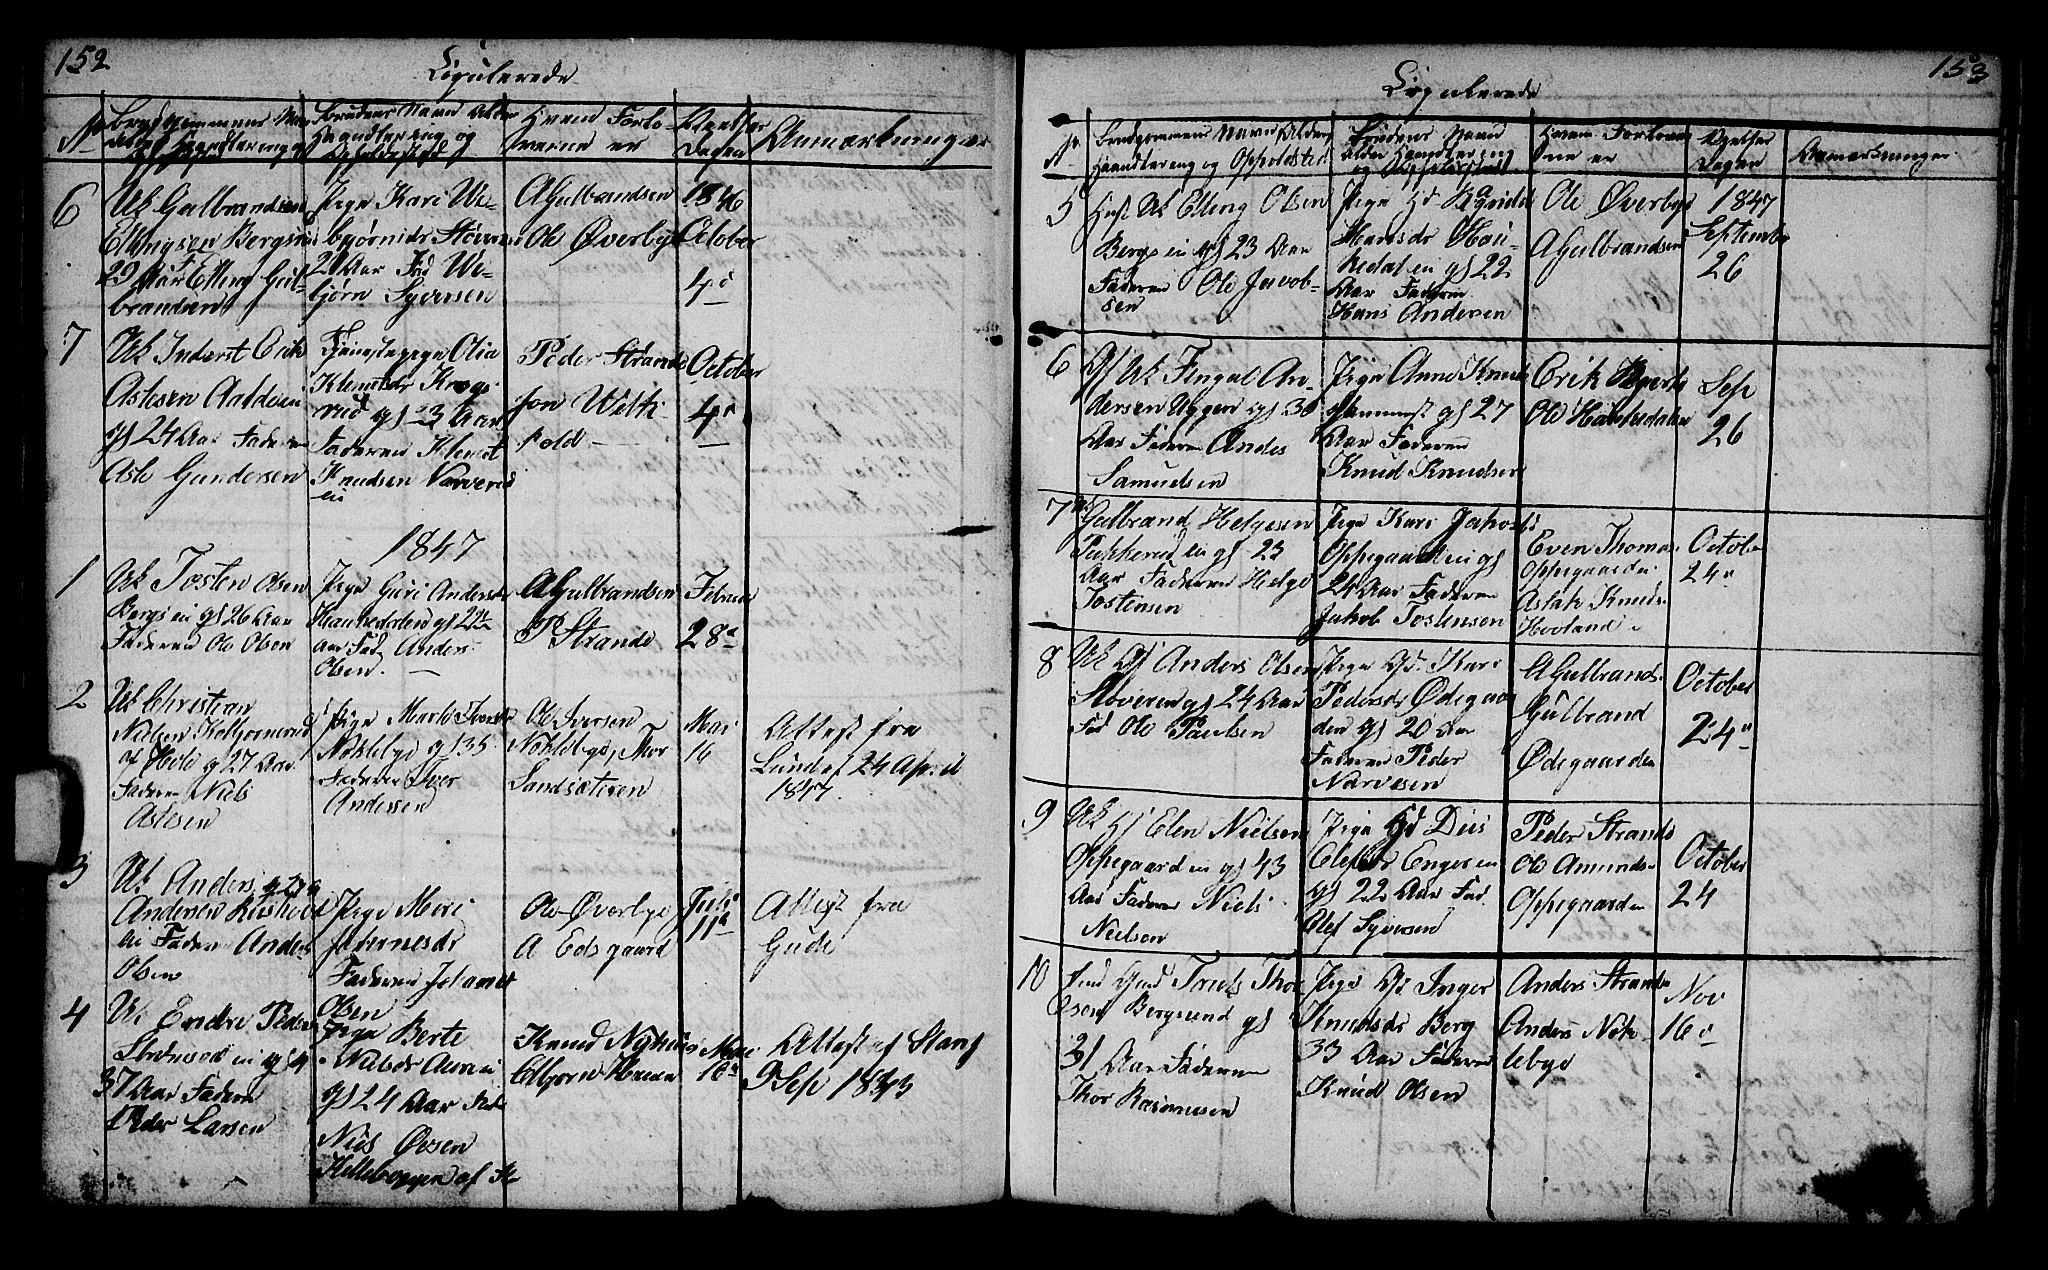 152
Copulerede
No
Brudgommens Navn
Alder Haandtering og
Brudens Navn Alder
Haandtering og
Opholdssted
Hvem Forlo-
verne er
Vielses
Dagen
Anmærkninger
6
Uk Gulbrand
Ellingsen Bergs
29 Aar Elling Gul-
brandsen
Pige Kari We-
bjørnsdr Støver
21 Aar Fad We-
bjørn Syversen
A Gulbrandsen
Ole Øverbye
1846
October
4
7
Uk Inderst Erik
Astesen
gl 24 Aar Faderen
Asle Gundersen
Tjenestepige Olia
Klemetsdr Krogs
rud gl 23 Aar
Faderen Klemet
Knudsen
Peder Strande
Jon Welti
fold
October
4
1847
1
Uk Tosten Olsen
Bergs ei gl 26 Aar
Faderen Ole Olsen
Pige Guri Andersdr
Haukedalen gl 22
Aar Fad Anders
Olsen
A Gulbrandsen
P Strande
Februar
28
2
Uk Christian
Nielsen Kolbjornsrud
af Hole gl 27 Aar
Faderen Niels
Astesen
Pige Marte Iversdr
Noklebye gl 35
Faderen Iver
Andersen
Ole Iversen
Noklebye, Thor
Sandsætren
Mai
16
Attest fra
Lund af 24 April
1847
3
Uk Anders gl 27
Andersen
ei Faderen Anders
Olsen
Pige Mari
Johannesdr
Faderen Johannes
Olsen
Ole Øverbye
A Eds gaard
Juli
11
Attest fra
Gude
4
Uk Endre Peder
ei gl
37 Aar Faderen
Peder Larsen
Pige Berte
Nielsdr
gl 24 Aar Fad
Niels Ovesen
Killebo
Knud Nyhuus
Elbjorn
16
Attest af Stang
9 Sep 1843
153
Copulerede
No
Brudgommens Navn Alder
Haandtering og Opholdsted
Brudens Navn
Alder Haandtering
og Opholdsted
Hvem Forlover
ne er
Vielses
Dagen
Anmærkninger
5
Uk Elling Olsen
Bergs ei gl 23 Aar
Faderen Ole Jacob-
sen
Pige Gd Ragnild
Hansdr Hau-
kedal ei gl 22
Aar Faderen
Hans Andersen
Ole Øverbye
A Gulbrandsen
1847
September
26
6
Gf Uk Fingal An-
dersen Uggen gl 30
Aar Faderen Andes
Samuelsen
Pige Anne Knuds
gl 27
Aar Faderen
Knud Knudsen
Erik
Ole Haukedalen
Sep
26
7
Gulbrand Helgesen
ei gl 23
Aar Faderen Helge
Tostensen
Pige Kari Jakobsd
Oppegaard ei gl
24 Aar Faderen
Jakob Tostensen
Even Thomas
Oppegaarden
Aslak Knuds
Hovland
October
24
8
Uk Gf Anders Olsen
Støveren gl 24 Aar
Fad Ole Paulsen
Pige Gd. Kari
Pedersdr Ødegaar
den gl 20 Aar
Faderen Peder
Narvesen
A Gulbrands
Gulbrand
Ødegaarden
October
24
9
Uk Gf Elen Nielsen
Oppegaard ei gl 43
Aar Faderen Niels
Nielsen
Pige Gd Dies
Olefsdr Enger ei
gl 22 Aar Fad
Olef Syversen
Peder Strande
Ole Amunds
Oppegaarden
October
24
10
Truls Thor
Esen Bergsund gl
31 Aar Faderen
Thor Rasmusen
Pige Gd Inger
Knudsdr Berg
33 Aar Faderen
Knud Olsen
Anders Strande
Anders Nok-
lebye
Nov
16